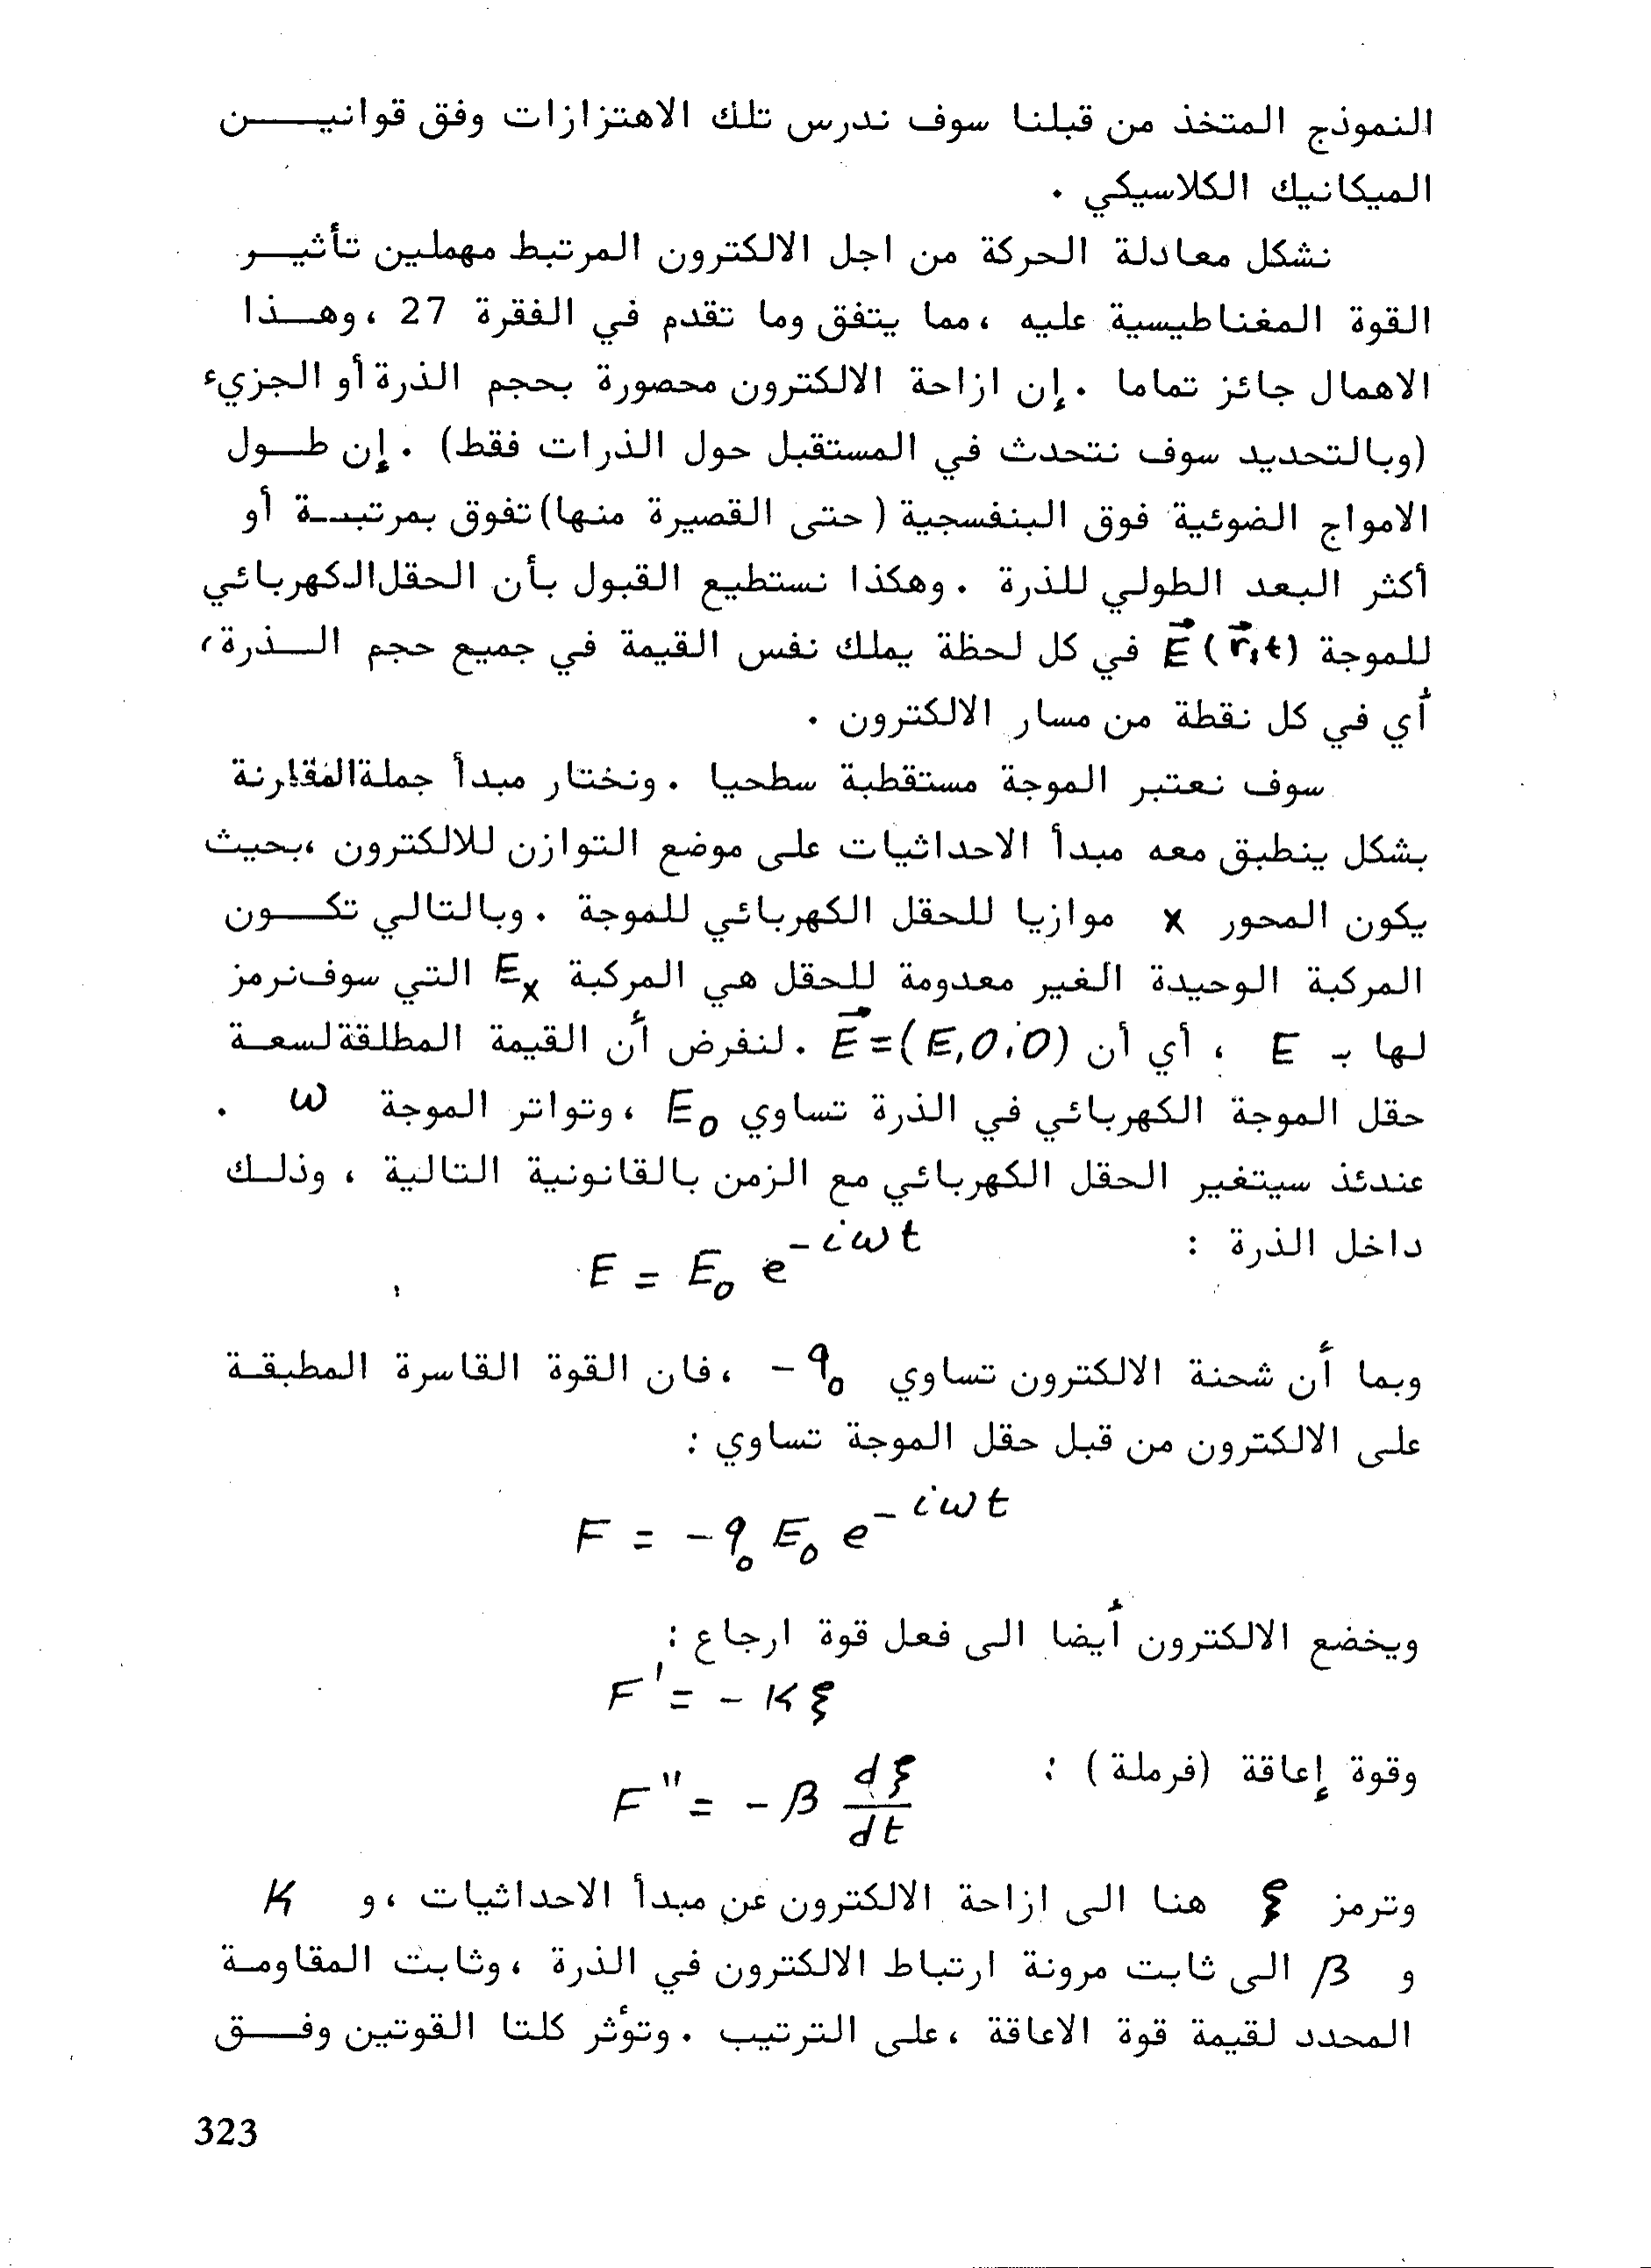 النموذج المتخذ من قبلنا سوف ندرس تلك الاهتزازات وفق قوانيـــن
الميكانيك الكلاسيكي .
نشكل معادلة الحركة من اجل الالكترون المرتبط مهملين تأثيــر
القوة المغناطيسية عليه ،مما يتفق وما تقدم في الفقرة 27 ،وهــذا
الاهمال جائز تماما . إن ازاحة الالكترون محصورة بحجم الذرة أو الجزيء
(وبالتحديد سوف نتحدث في المستقبل حول الذرات فقط) . إن طــول
الامواج الضوئية فوق البنفسجية (حتى القصيرة منها) تفوق بمرتبــة أو
أكثر البعد الطولي للذرة . وهكذا نستطيع القبول بأن الحقل الكهربائي
للموجة E⃗(r⃗,t) في كل لحظة يملك نفس القيمة في جميع حجم الـــذرة،
أي في كل نقطة من مسار الالكترون .
سوف نعتبر الموجة مستقطبة سطحيا . ونختار مبدأ جملة المقارنة
بشكل ينطبق معه مبدأ الاحداثيات على موضع التوازن للالكترون ،بحيث
يكون المحور x موازيا للحقل الكهربائي للموجة . وبالتالي تكـــون
المركبة الوحيدة الغير معدومة للحقل هي المركبة Eₓ التي سوف نرمز
لها بـ E ، أي أن E⃗=(E,0,0) . لنفرض أن القيمة المطلقة لسعـة
حقل الموجة الكهربائي في الذرة تساوي E₀ ،وتواتر الموجة ω .
عندئذ سيتغير الحقل الكهربائي مع الزمن بالقانونية التالية ، وذلـك
داخل الذرة :
E = E₀ e^{-iωt}
وبما أن شحنة الالكترون تساوي -q₀ ،فان القوة القاسرة المطبقـة
على الالكترون من قبل حقل الموجة تساوي :
F = -q₀ E₀ e^{-iωt}
ويخضع الالكترون أيضا الى فعل قوة ارجاع :
F' = - K ξ
وقوة إعاقة (فرملة) :
F" = - β dξ/dt
وترمز ξ هنا الى ازاحة الالكترون عن مبدأ الاحداثيات ،و K
و β الى ثابت مرونة ارتباط الالكترون في الذرة ،وثابت المقاومـة
المحدد لقيمة قوة الاعاقة ،على الترتيب . وتؤثر كلتا القوتين وفـــق
323